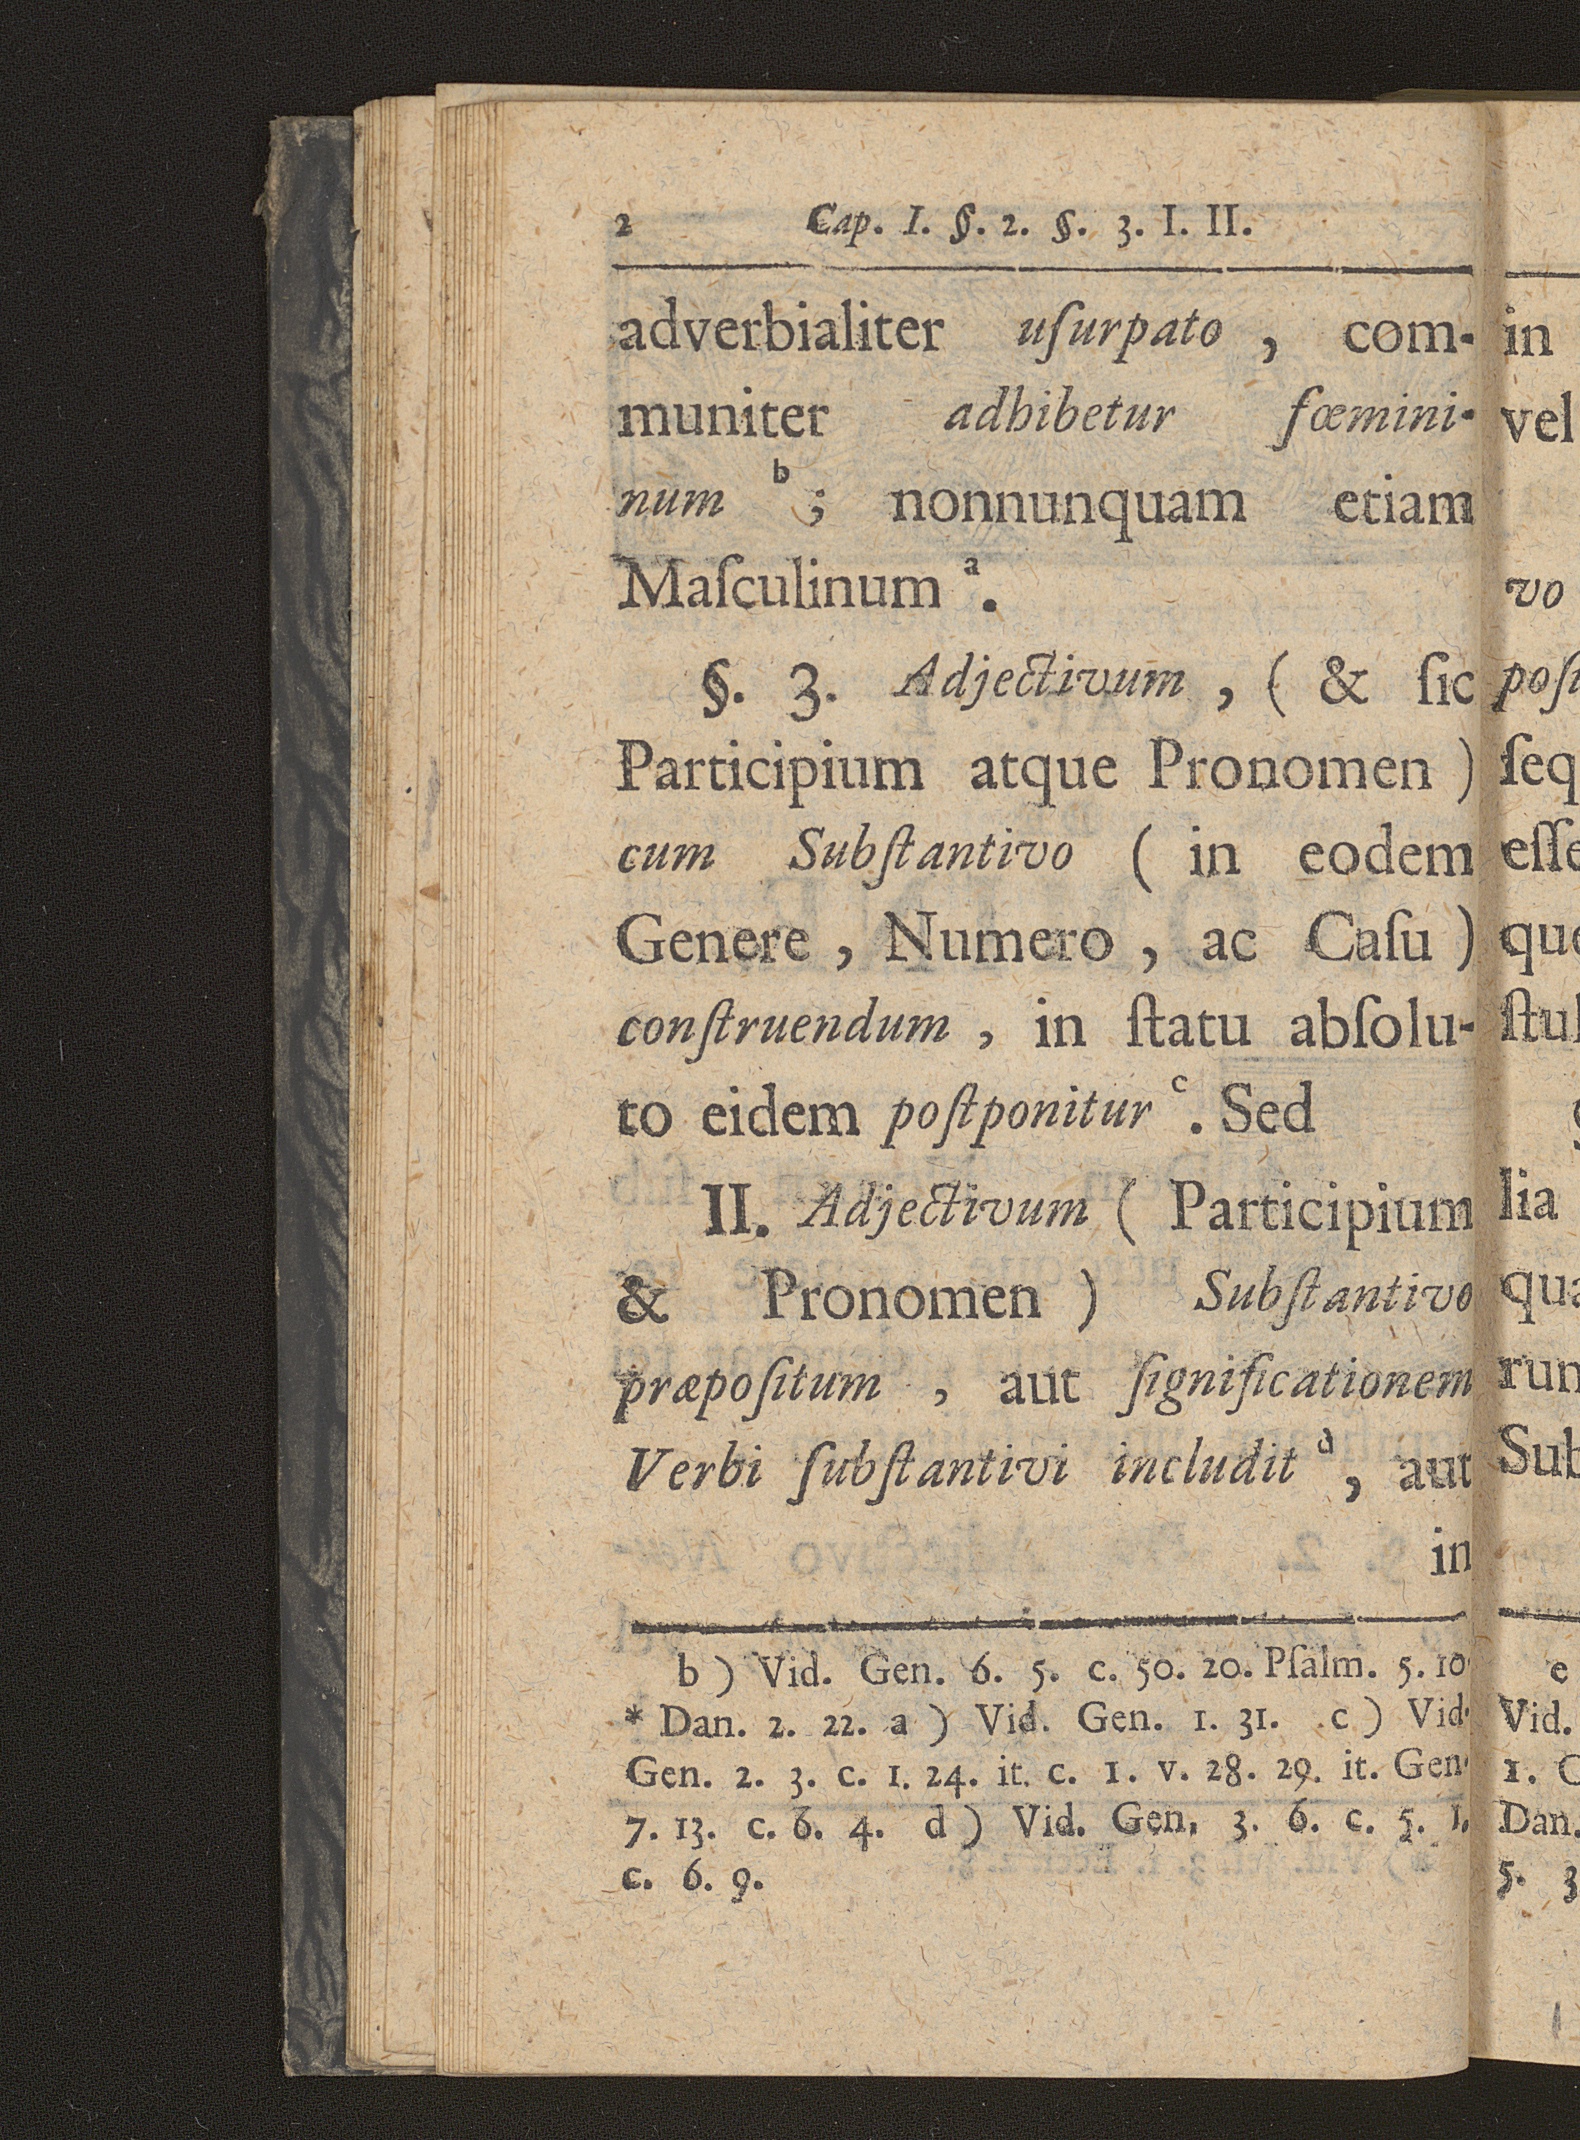 2 Cap. I. §. 2. §. 3. I. II.
adverbialiter uſurpato , com-
muniter adhibetur fœmini-
num b ; nonnunquam etiam
Maſculinum a .
§. 3. Adjectivum , ( & ſic
Participium atque Pronomen )
cum Subſtantivo ( in eodem
Genere , Numero , ac Caſu )
conſtruendum , in ſtatu abſolu-
to eidem poſtponitur c . Sed
II. Adjectivum ( Participium
& Pronomen ) Subſtantivo
præpoſitum , aut ſignificationem
Verbi ſubſtantivi includit d , aut
in
b ) Vid. Gen. 6. 5. c. 50. 20. Pſalm. 5. 10
* Dan. 2. 22. a ) Vid. Gen. 1. 31. c ) Vid.
Gen. 2. 3. c. 1. 24. it. c. 1. v. 28. 29. it. Gen.
7. 13. c. 6. 4. d ) Vid. Gen. 3. 6. c. 5. 1.
c. 6. 9.
in
vel
vo
ſeq
eſſe
lia
Sub
Vid.
Dan.
5. 3